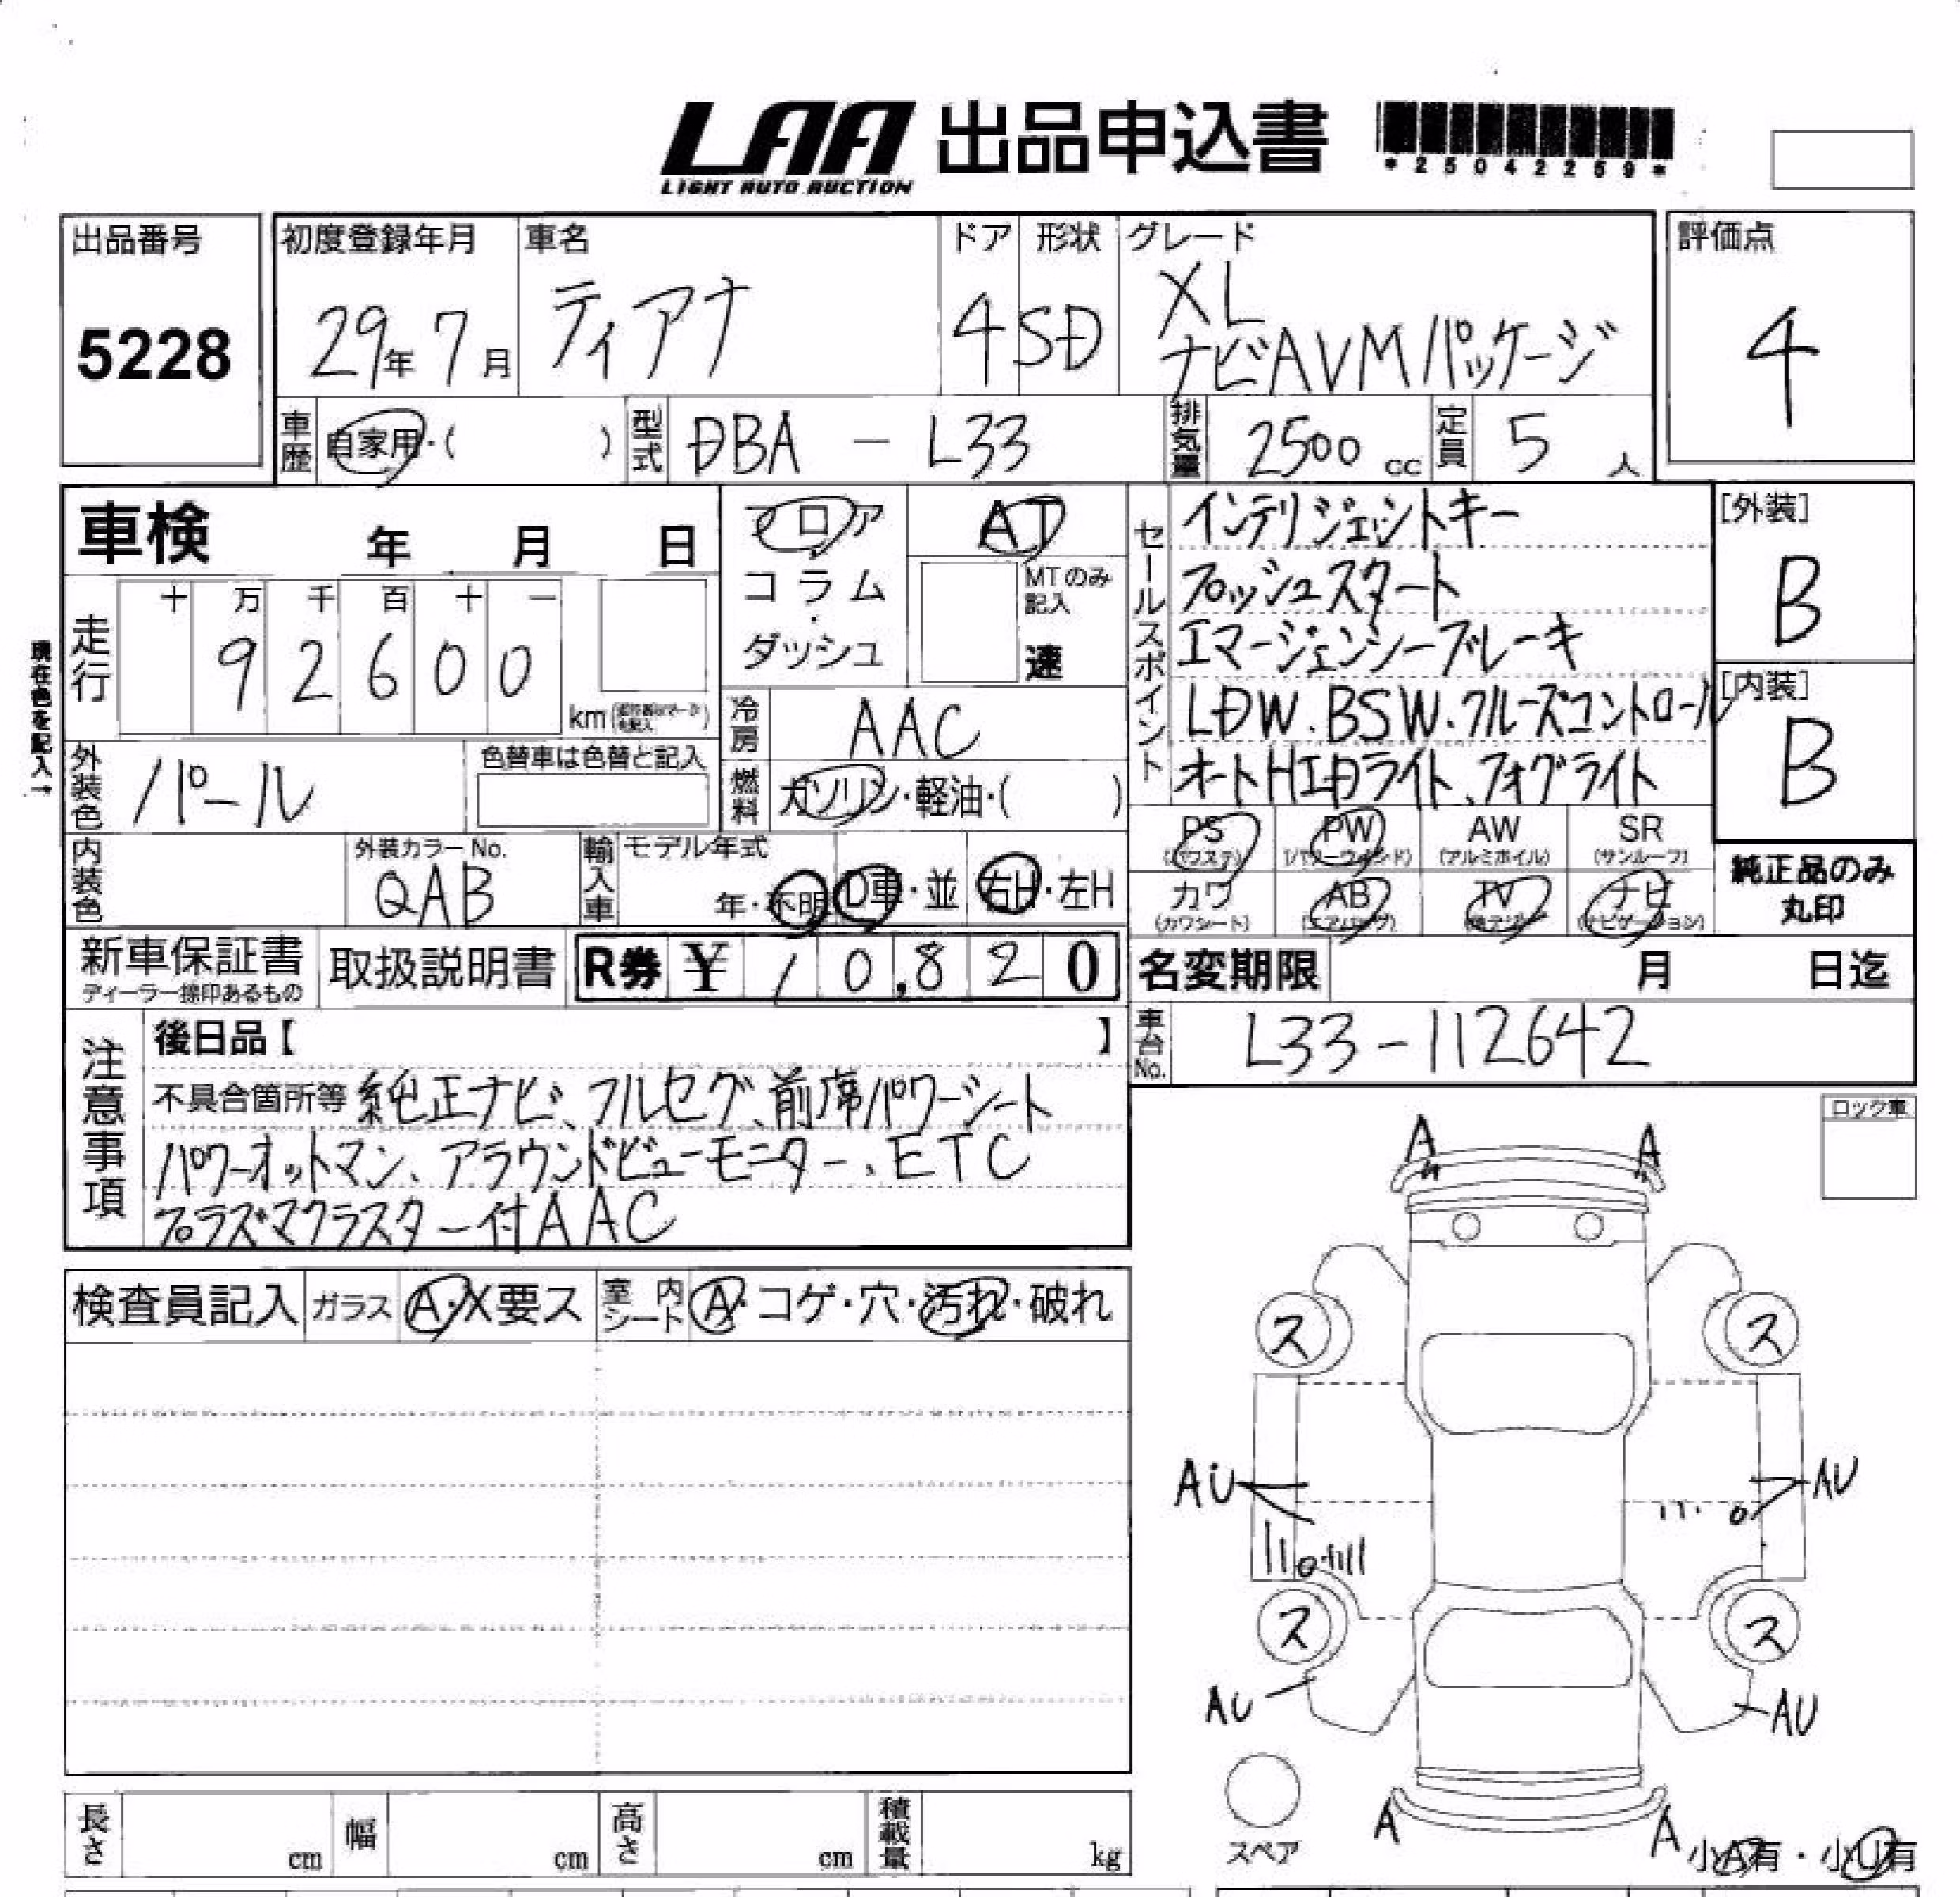 LAA 出品申込書
LIGHT AUTO AUCTION
*25042259*
出品番号
5228
初度登録年月
29年7月
車名
ティアナ
ドア
4
形状
SD
グレード
XL
ナビAVMパッケージ
評価点
4
車歴
自家用・( )
型式
DBA - L33
排気量
2500 cc
定員
5 人
車検 年 月 日
フロア・コラム・ダッシュ
AT
MTのみ記入
速
セールスポイント
インテリジェントキー
プッシュスタート
エマージェンシーブレーキ
LDW.BSW.クルーズコントロール
オートHIDライト、フォグライト
[外装]
B
[内装]
B
現在色を記入→
走行
十 万 千 百 十 一
9 2 6 0 0
km
冷房
AAC
外装色
パール
色替車は色替と記入
燃料
ガソリン・軽油・( )
PS (パワステ)
PW (パワーウィンド)
AW (アルミホイル)
SR (サンルーフ)
カワ (カワシート)
AB (エアバッグ)
TV (地デジ)
ナビ (ナビゲーション)
純正品のみ
丸印
内装色
外装カラーNo.
QAB
輸入車
モデル年式
年・不明
D車・並
右H・左H
新車保証書
ディーラー捺印あるもの
取扱説明書
R券 ¥ 10,820
名変期限 月 日迄
車台No.
L33-112642
注意事項
後日品【 】
不具合箇所等 純正ナビ、フルセグ、前席パワーシート
パワーオットマン、アラウンドビューモニター、ETC
プラズマクラスター付AAC
ロック車
検査員記入
ガラス A・X要ス
室内シート A・コゲ・穴・汚れ・破れ
A A
ス ス
AU AU
ス ス
AU AU
A A
スペア
小A有・小U有
長さ cm
幅 cm
高さ cm
積載量 kg